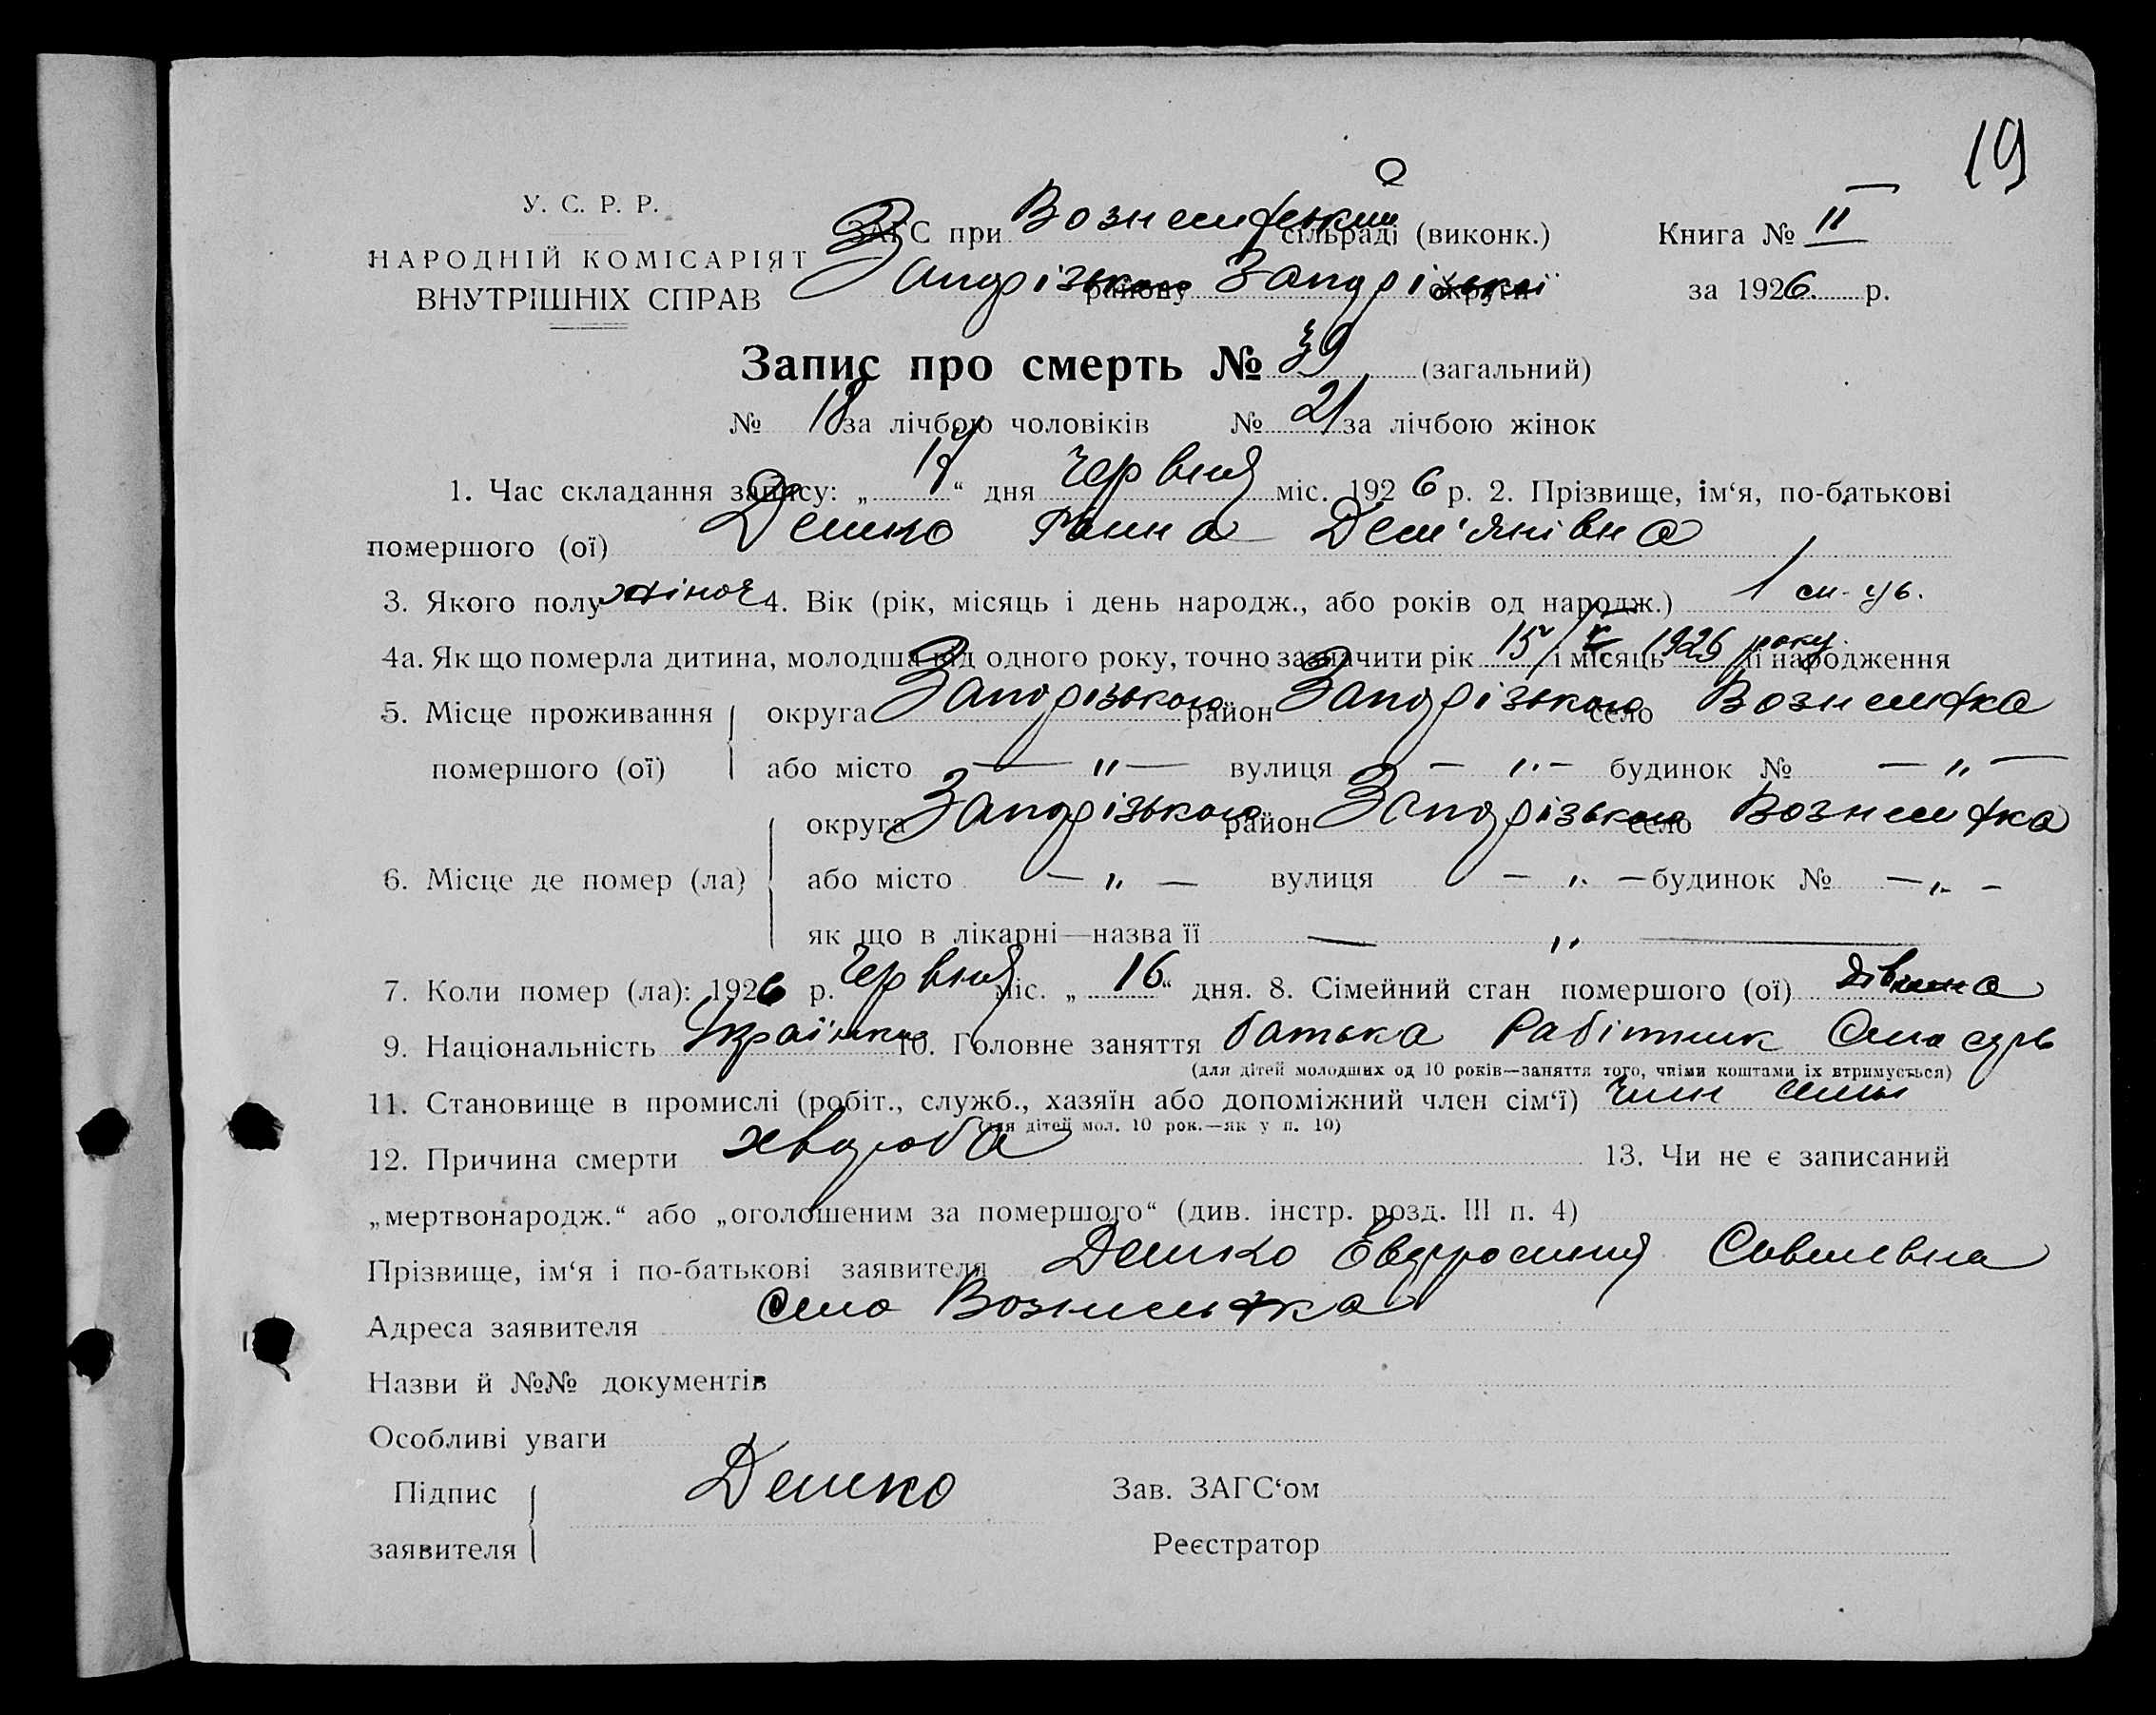 19
У. С. Р. Р.
НАРОДНІЙ КОМІСАРІЯТ
ВНУТРІШНІХ СПРАВ
ЗАГС при Вознесенській сільраді (виконк.)
Запорізького району Запорізької округи
Книга № II
за 1926. р.
Запис про смерть № 39 (загальний)
№ 18 за лічбою чоловіків № 21 за лічбою жінок
1. Час складання запису: „17“ дня Червня міс. 1926 р. 2. Прізвище, ім‘я, по-батькові
помершого (ої) Демко Ганна Дем'янівна
3. Якого полу жіноч 4. Вік (рік, місяць і день народж., або років од народж.) 1 м-ць.
4а. Як що померла дитина, молодша від одного року, точно зазначити рік 15/V і місяць 1926 року її народження
5. Місце проживання помершого (ої) округа Запорізького район Запорізького село Вознесенка
або місто — " — вулиця — " — будинок № — " —
6. Місце де помер (ла) округа Запорізького район Запорізького село Вознесенка
або місто — " — вулиця — " — будинок № — " —
як що в лікарні—назва її — " —
7. Коли помер (ла): 1926 р. Червня міс. „16“ дня. 8. Сімейний стан помершого (ої) дівчина
9. Національність Українка 10. Головне заняття батька Рабітник
(для дітей молодших од 10 років—заняття того, чиїми коштами їх втримується)
11. Становище в промислі (робіт., служб., хазяїн або допоміжний член сім‘ї) член семьи
(для дітей мол. 10 рок.—як у п. 10)
12. Причина смерти хвороба 13. Чи не є записаний
„мертвонародж.“ або „оголошеним за помершого“ (див. інстр. розд. III п. 4)
Прізвище, ім‘я і по-батькові заявителя Демко Евдросиния
Адреса заявителя село Вознесенка
Назви й №№ документів
Особливі уваги
Підпис заявителя Демко
Зав. ЗАГС‘ом
Реєстратор